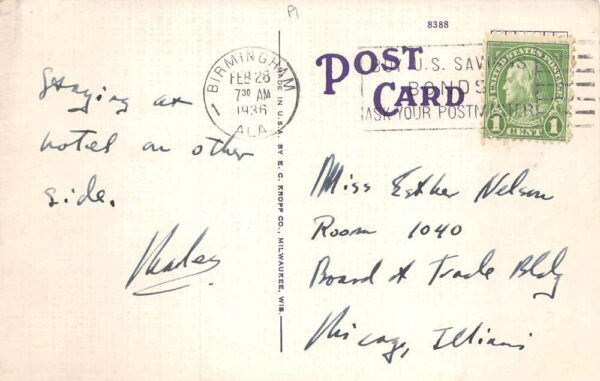 8388
POST CARD
BIRMINGHAM
FEB 28
7 30 AM
1936
ALA.
1
BUY U.S. SAVINGS
BONDS
ASK YOUR POSTMASTER
UNITED STATES POSTAGE
1 CENT 1
MADE IN U.S.A. BY E. C. KROPP CO., MILWAUKEE, WIS.
Staying at
hotel on other
side.
Miss Esther Nelson
Room 1040
Board of Trade Bldg
Chicago, Illinois